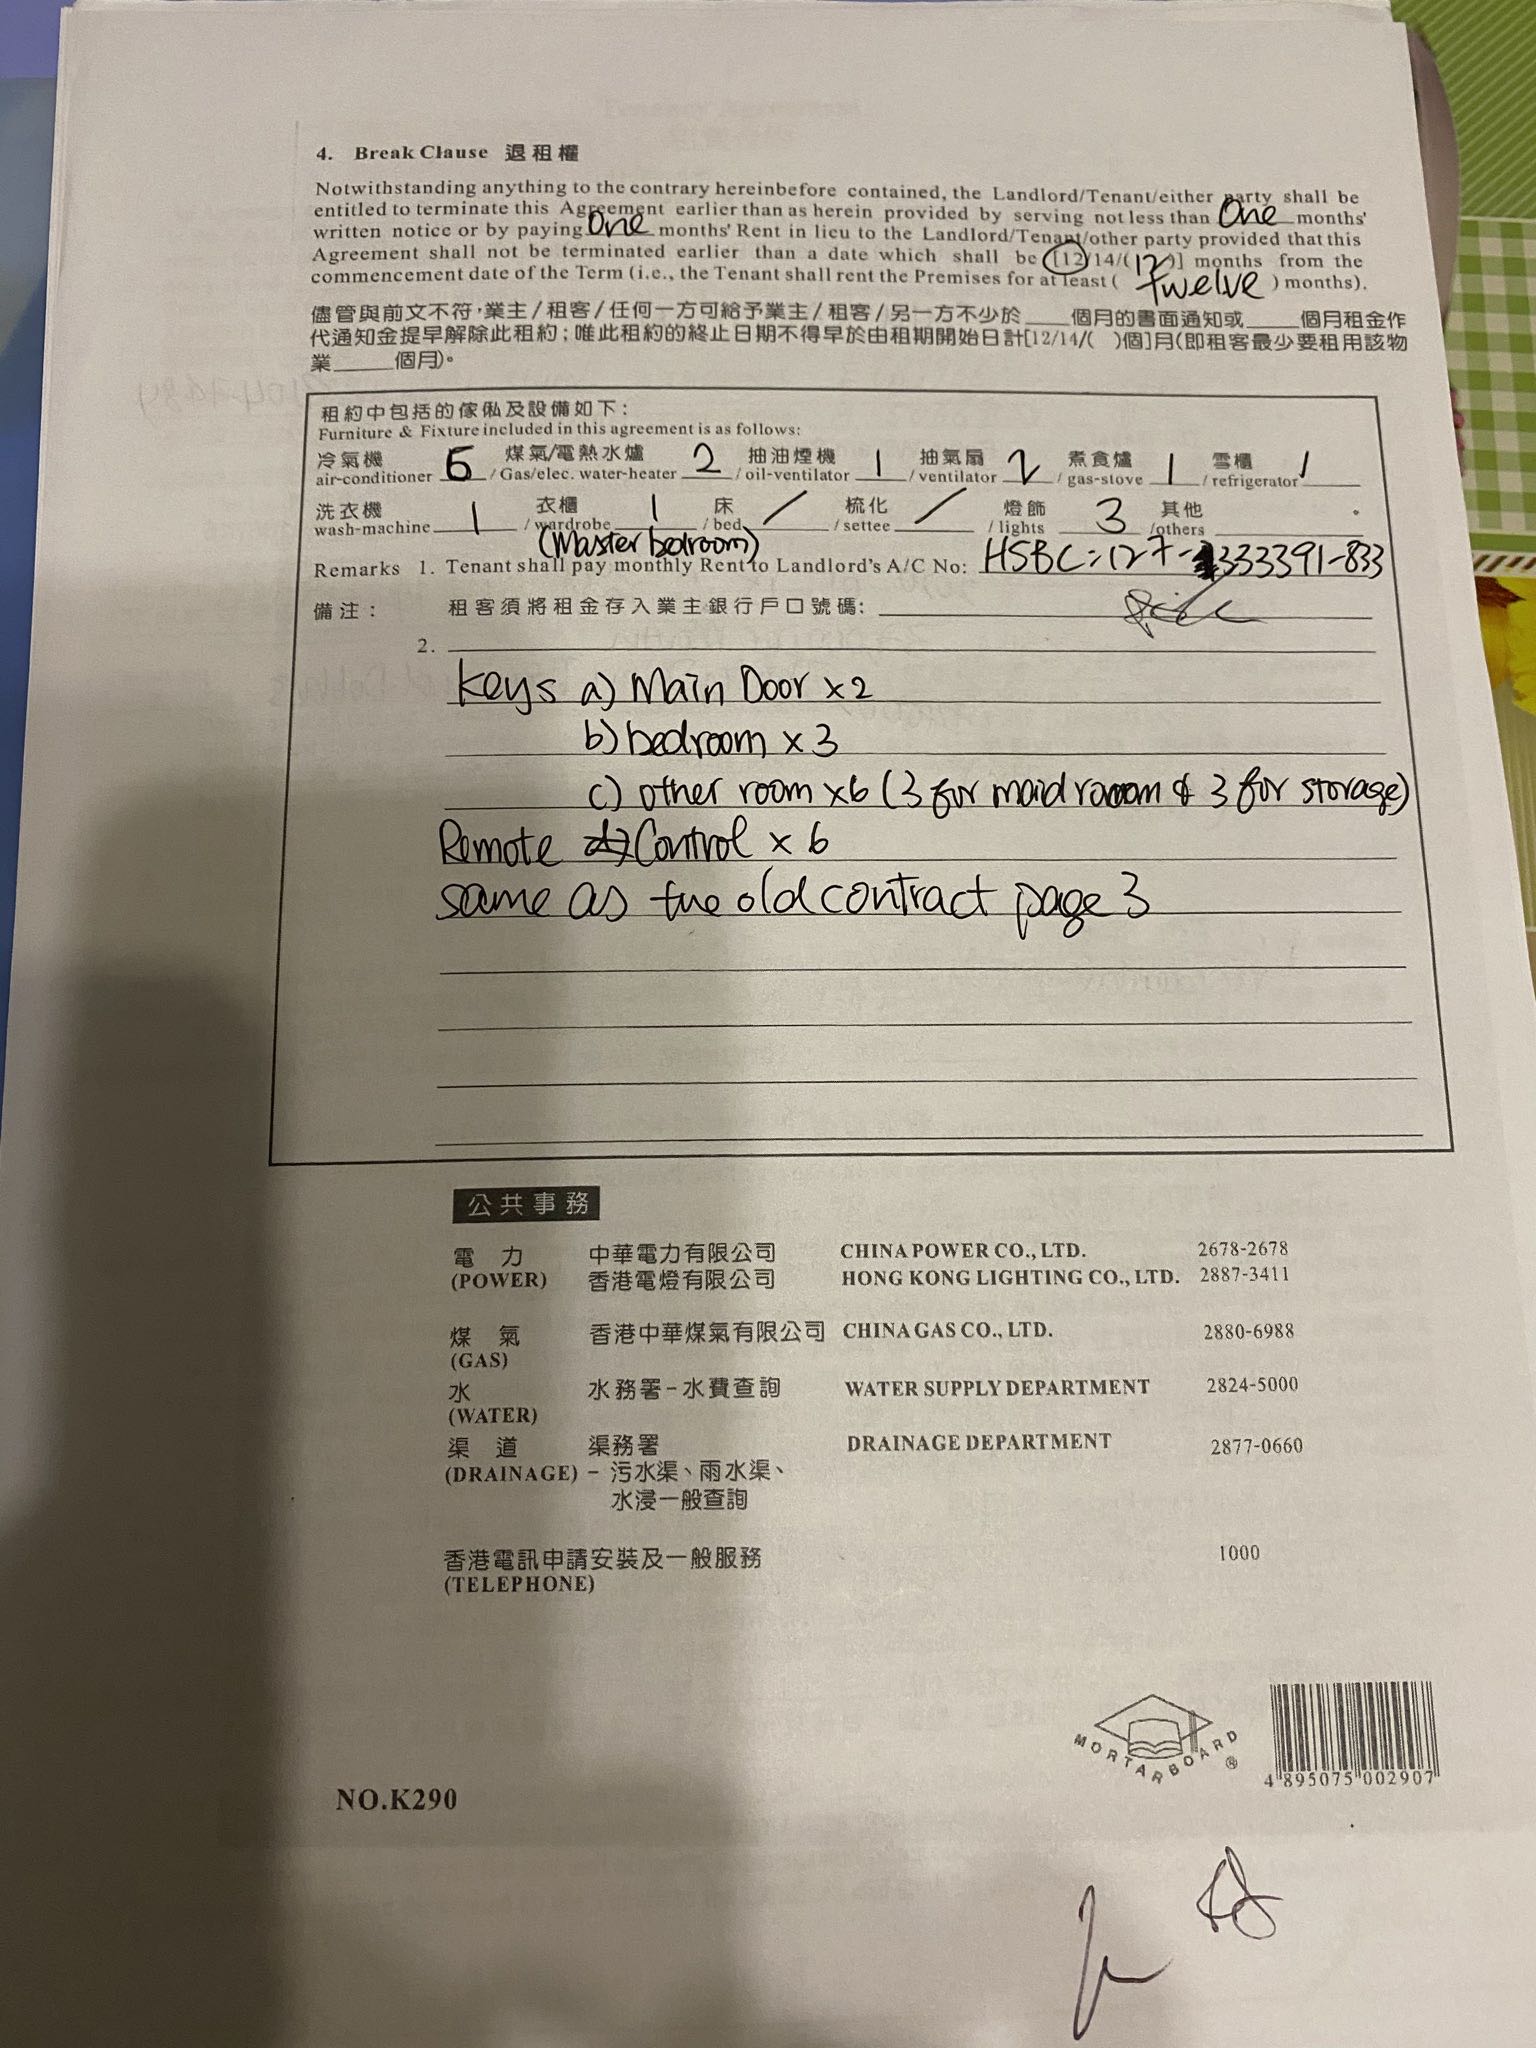 4. Break Clause 退租權
Notwithstanding anything to the contrary hereinbefore contained, the Landlord/Tenant/either party shall be
entitled to terminate this Agreement earlier than as herein provided by serving not less than One months'
written notice or by paying One months' Rent in lieu to the Landlord/Tenant/other party provided that this
Agreement shall not be terminated earlier than a date which shall be [12/14/(12)] months from the
commencement date of the Term (i.e., the Tenant shall rent the Premises for at least ( twelve ) months).
儘管與前文不符,業主/租客/任何一方可給予業主/租客/另一方不少於____個月的書面通知或____個月租金作
代通知金提早解除此租約;唯此租約的終止日期不得早於由租期開始日計[12/14/( )個]月(即租客最少要租用該物
業____個月)。
租約中包括的傢俬及設備如下:
Furniture & Fixture included in this agreement is as follows:
冷氣機 煤氣/電熱水爐 抽油煙機 抽氣扇 煮食爐 雪櫃
air-conditioner /Gas/elec. water-heater 2 /oil-ventilator 1 /ventilator 2 /gas-stove 1 /refrigerator 1
洗衣機 衣櫃 床 梳化 燈飾 其他
wash-machine 1 /wardrobe 1 /bed / /settee / /lights 3 /others
(Master bedroom)
Remarks 1. Tenant shall pay monthly Rent to Landlord's A/C No: HSBC: 127-333391-833
備注: 租客須將租金存入業主銀行戶口號碼:
2.
Keys a) Main Door x2
b) bedroom x 3
c) other room x6 (3 for maid room & 3 for storage)
Remote Control x 6
same as the old contract page 3
公共事務
電力 中華電力有限公司 CHINA POWER CO., LTD. 2678-2678
(POWER) 香港電燈有限公司 HONG KONG LIGHTING CO., LTD. 2887-3411
煤氣 香港中華煤氣有限公司 CHINA GAS CO., LTD. 2880-6988
(GAS)
水 水務署-水費查詢 WATER SUPPLY DEPARTMENT 2824-5000
(WATER)
渠道 渠務署 DRAINAGE DEPARTMENT 2877-0660
(DRAINAGE) - 污水渠、雨水渠、
水浸一般查詢
香港電訊申請安裝及一般服務 1000
(TELEPHONE)
MORTARBOARD ®
4 895075 002907
NO.K290